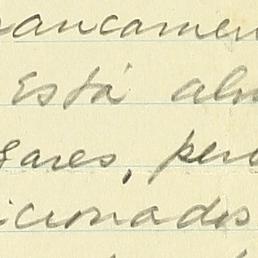 ancamen
Está abs
gares, pero
icionados